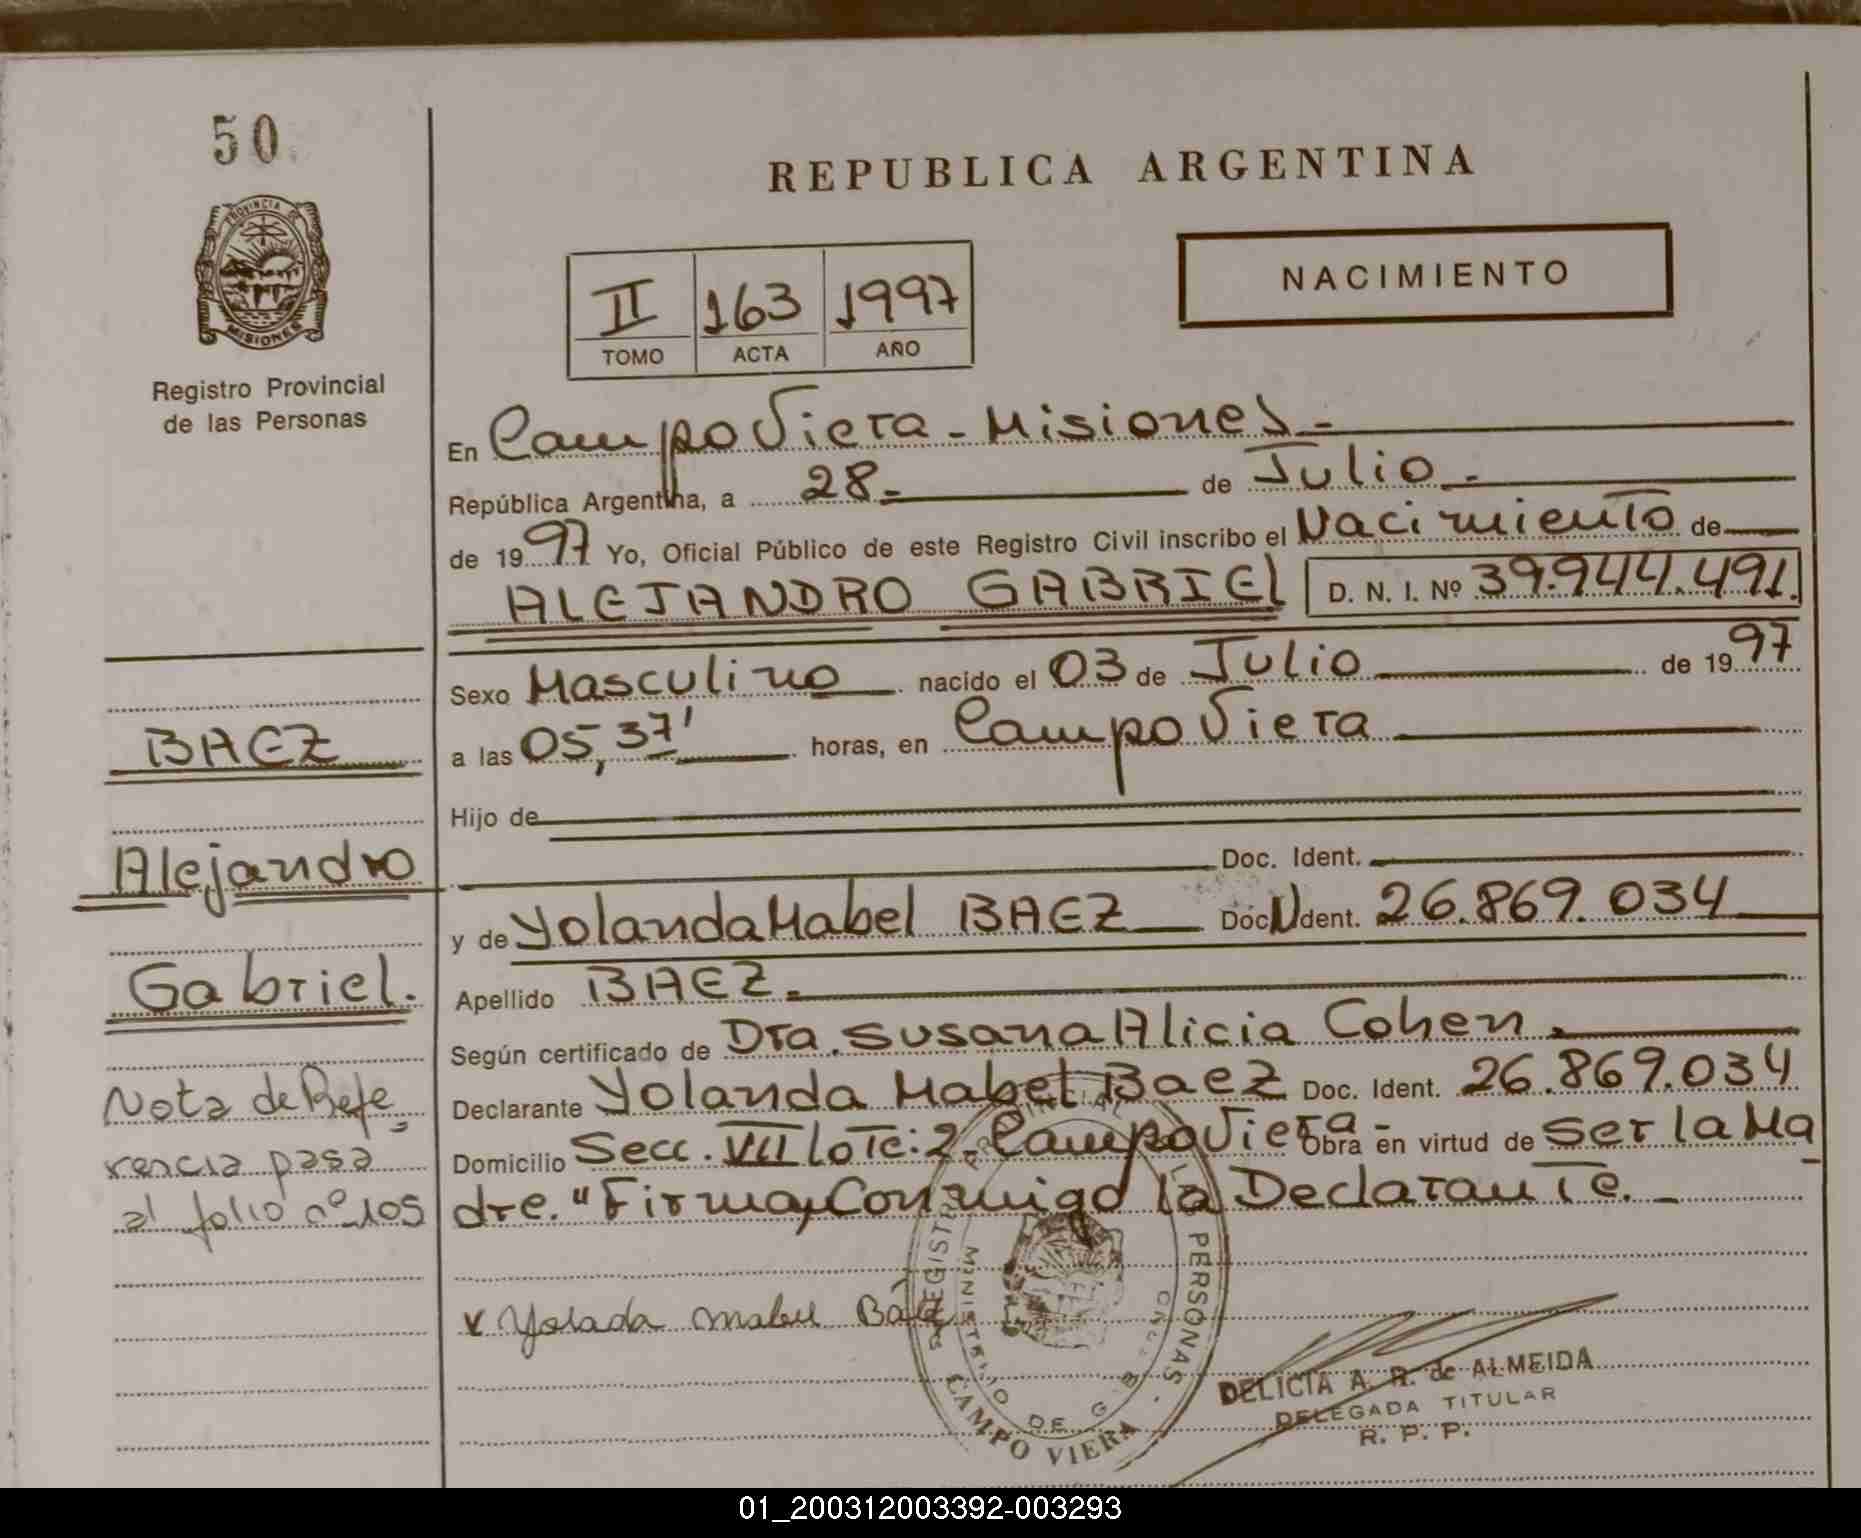 50
PROVINCIA DE
MISIONES
Registro Provincial
de las Personas
REPUBLICA ARGENTINA
II 163 1997
TOMO ACTA AÑO
NACIMIENTO
En Campo Viera - Misiones -
República Argentina, a 28- de Julio -
de 1997 Yo, Oficial Público de este Registro Civil inscribo el Nacimiento de
ALEJANDRO GABRIEL D. N. I. Nº 39.944.491.
Sexo Masculino nacido el 03 de Julio de 1997
a las 05,37' horas, en Campo Viera
Hijo de
Doc. Ident.
y de Yolanda Mabel BAEZ Doc. Ident. 26.869.034
Apellido BAEZ.
Según certificado de Dra. Susana Alicia Cohen.
Declarante Yolanda Mabel Baez Doc. Ident. 26.869.034
Domicilio Secc. VII lote: 2- Campo Viera Obra en virtud de ser la Ma
dre. "Firma Conmigo la Declarante. -
BAEZ
Alejandro
Gabriel.
Nota de Refe
rencia pasa
al folio nº 105
v Yolada Mabel Báez
REGISTRO PROVINCIAL DE LAS PERSONAS -
MINISTERIO DE G
CAMPO VIERA
DELICIA A. R. de ALMEIDA
DELEGADA TITULAR
R. P. P.
01_200312003392-003293